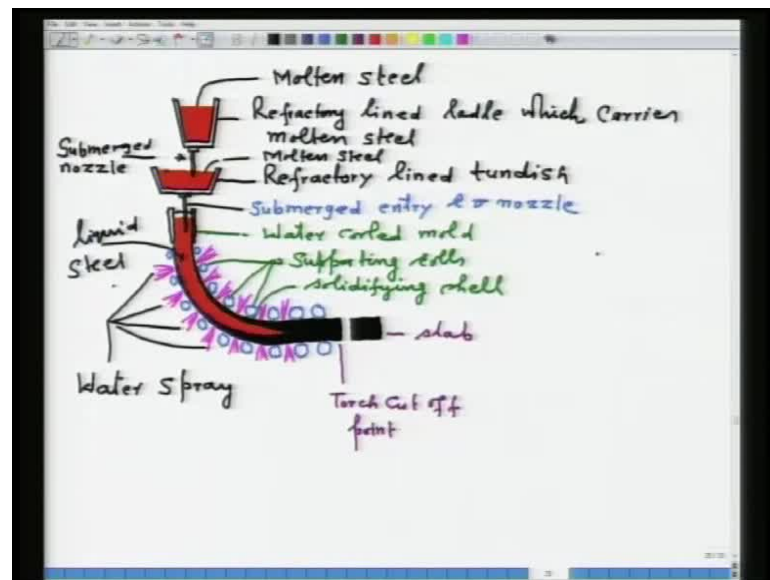 Molten steel
Refractory lined ladle which carries
molten steel
Submerged
nozzle
Molten steel
Refractory lined tundish
Submerged entry nozzle
Water cooled mold
liquid
steel
Supporting rolls
solidifying shell
slab
Water Spray
Torch Cut off
point